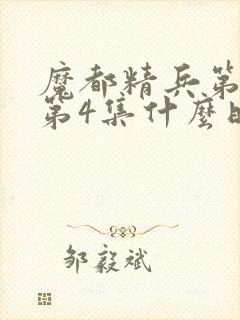 魔都精兵第
第4集什麼
邹毅斌